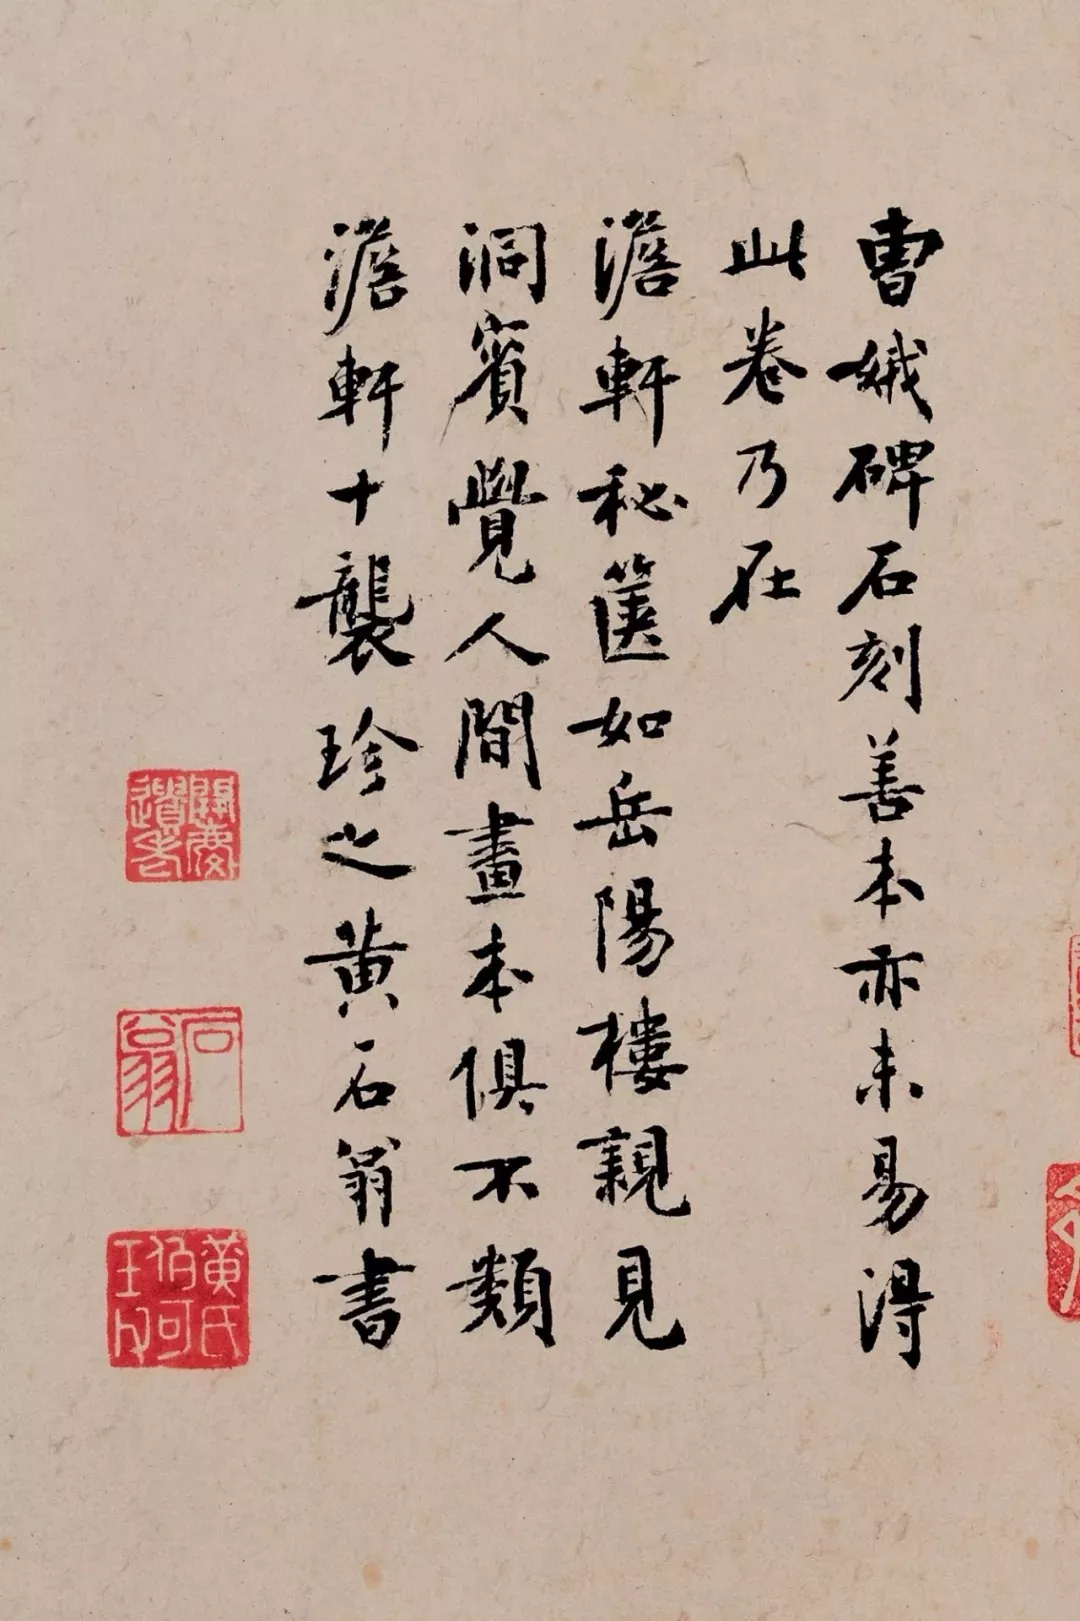 曹娥碑石刻善本亦未易得
此卷乃在
澹軒秘篋如岳陽樓親見
洞賓覺人間畫本俱不類
澹軒十襲珍之黄石翁書
石翁
黄氏伯可